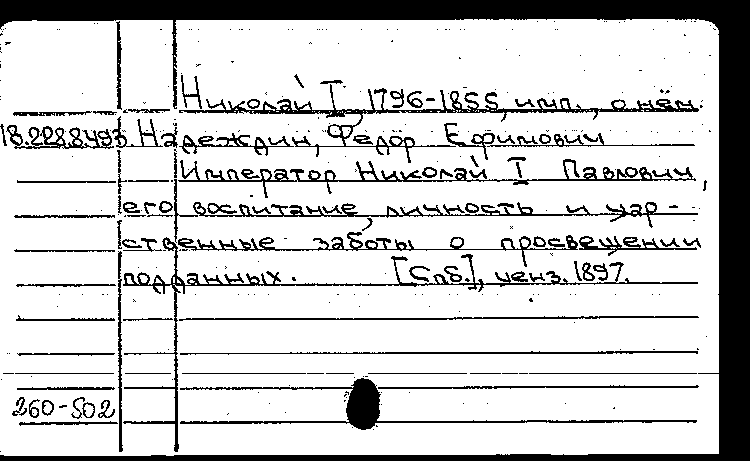 Николай I, 1796-1855, имп., о нём.
18.228.8.493. Надеждин, Федор Ефимович
Император Николай I Павлович,
его воспитание, личность и цар-
ственные заботы о просвещении
подданных. [Спб.], ценз. 1897.
260-502